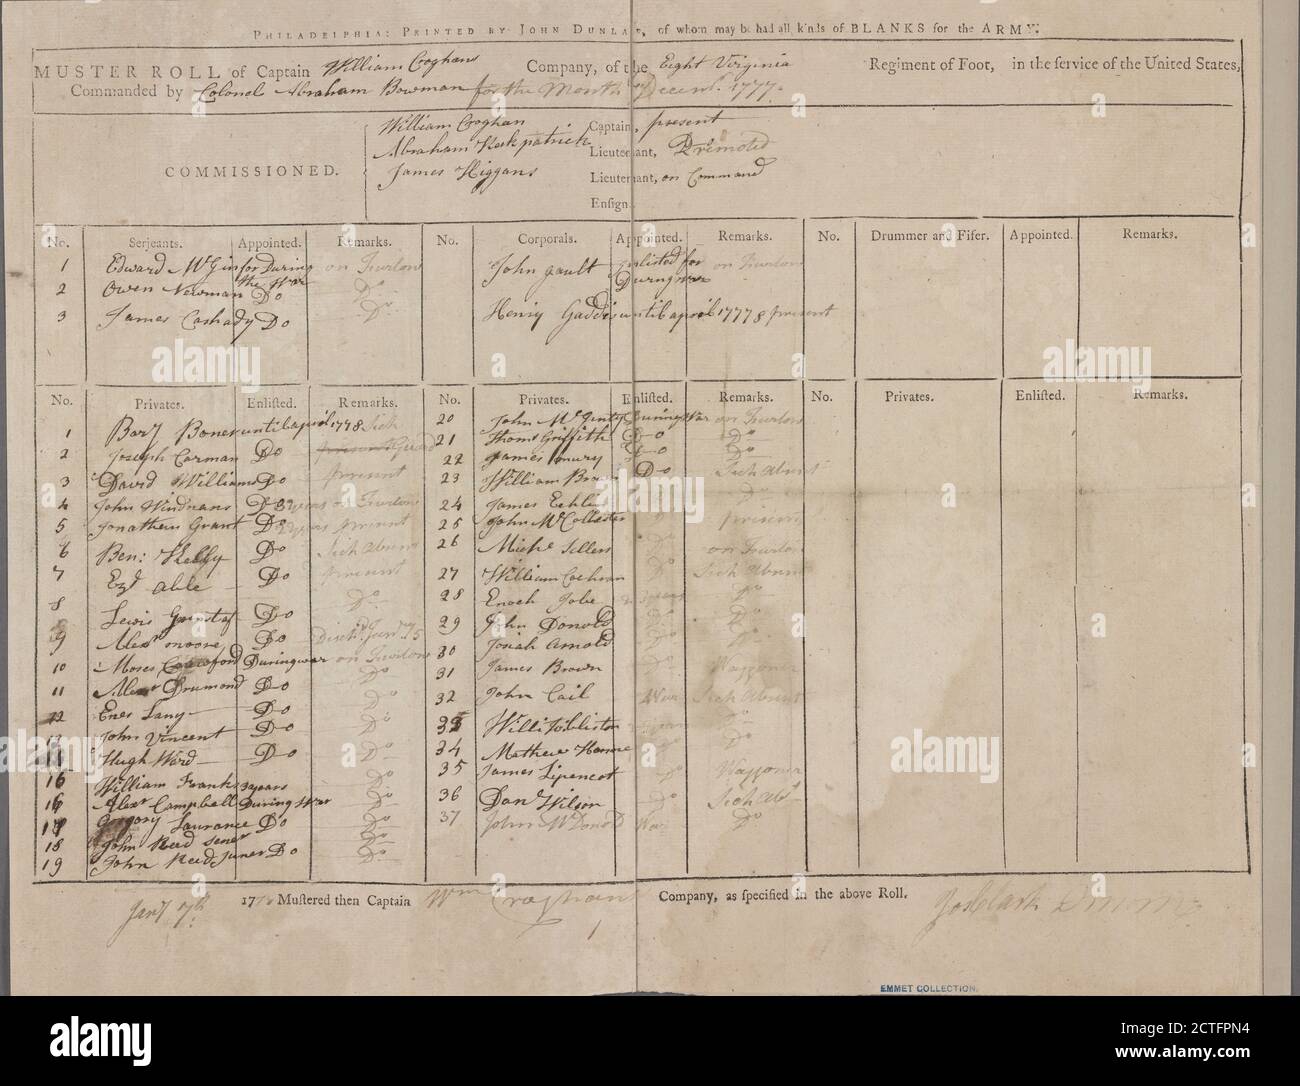 PHILADELPHIA: PRINTED BY JOHN DUNLAP, of whom may be had all kinds of BLANKS for the ARMY.
MUSTER ROLL of Captain William Croghans Company, of the Eight Virginia Regiment of Foot, in the service of the United States,
Commanded by Colonel Abraham Bowman for the Month of Decemr. 1777.
COMMISSIONED.
William Croghan Captain, present
Abraham Kirkpatrick Lieutenant, Promoted
James Higgans Lieutenant, on Command
Ensign.
No. Serjeants. Appointed. Remarks. No. Corporals. Appointed. Remarks. No. Drummer and Fifer. Appointed. Remarks.
1 Edward McGin for During the War on Furlow John gault Enlisted for During war on Furlow
2 Owen Newman Do Do
3 James Cashady Do Do Henry Gaddis until april 17778 present
No. Privates. Enlisted. Remarks. No. Privates. Enlisted. Remarks. No. Privates. Enlisted. Remarks.
1 Bary Boner until april 1778 Sick
2 Joseph Carman Do present Guard
3 David Williams Do present
4 John Windnans Do 3 years on Furlow
5 Jonathan Grant Do present
6 Ben: Kelly Do Sick absent
7 Ezl able Do present
8 Lewis Grinstaf Do Do
9 Alexr moore Do Disch. Janry 15
10 Moses Crawford During war on Furlow
11 Alexr Drumond Do Do
12 Enes Lany Do Do
13 John Vincent Do Do
Hugh Ward Do Do
16 William Franks 3 years Do
16 Alexr Campbell During War Do
Gregory Laurance Do Do
18 John Reed sener Do
19 John Reed Juner Do Do
20 John McGinty During War on Furlow
21 Thoms Griffith Do Do
22 James mury Do Do
23 William Brown Do Sick absent
24 James Do
25 John McCollester present
26 Michl Sellers on Furlow
27 William Cochran Do Sick absent
28 Enoch Jobe 3 years Do
29 John Donold Do
30 Josiah Arnold Do
31 James Brown Waggoner
32 John Cail War Sick absent
33 Do
34 Mathew Do
35 James Lipencot Do Waggoner
36 Danl Wilson Do Sick Abst
37 John McDonold War Do
Jany 7th 1778 Mustered then Captain Wm Croghan Company, as specified in the above Roll. Jos Clark
EMMET COLLECTION.
alamy
Image ID: 2CTFPN4
www.alamy.com